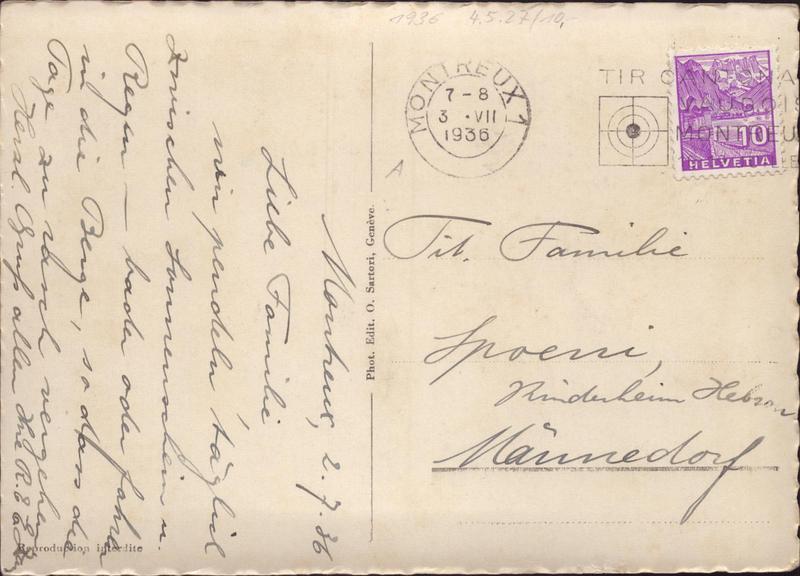 1936 4.5.27/10,-
MONTREUX 1
7-8
3 . VII
1936
TIR CANTONA
VAUDOIS
MONTREU
10
HELVETIA
A
Montreux, 2.7.36
Liebe Familie
wir pendeln täglich
zwischen Sonnenschein u.
Regen – baden oder fahren
in die Berge, sodass die
Tage zu rasch vergehen
Herzl. Gruß allen Ihre R. E
Phot. Edit. O. Sartori, Genève.
Tit. Familie
Spoerri,
Kinderheim Hebron
Männedorf
Reproduction interdite